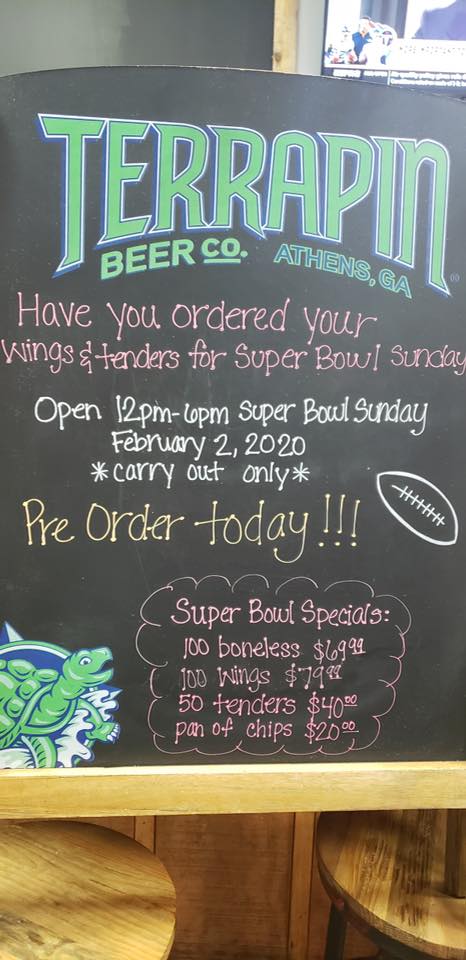 TERRAPIN
BEER CO. ATHENS, GA
Have you ordered your
wings & tenders for Super Bowl Sunday
Open 12pm-6pm Super Bowl Sunday
February 2, 2020
*carry out only*
Pre Order today!!!
Super Bowl Specials:
100 boneless $69.99
100 wings $79.99
50 tenders $40.00
pan of chips $20.00